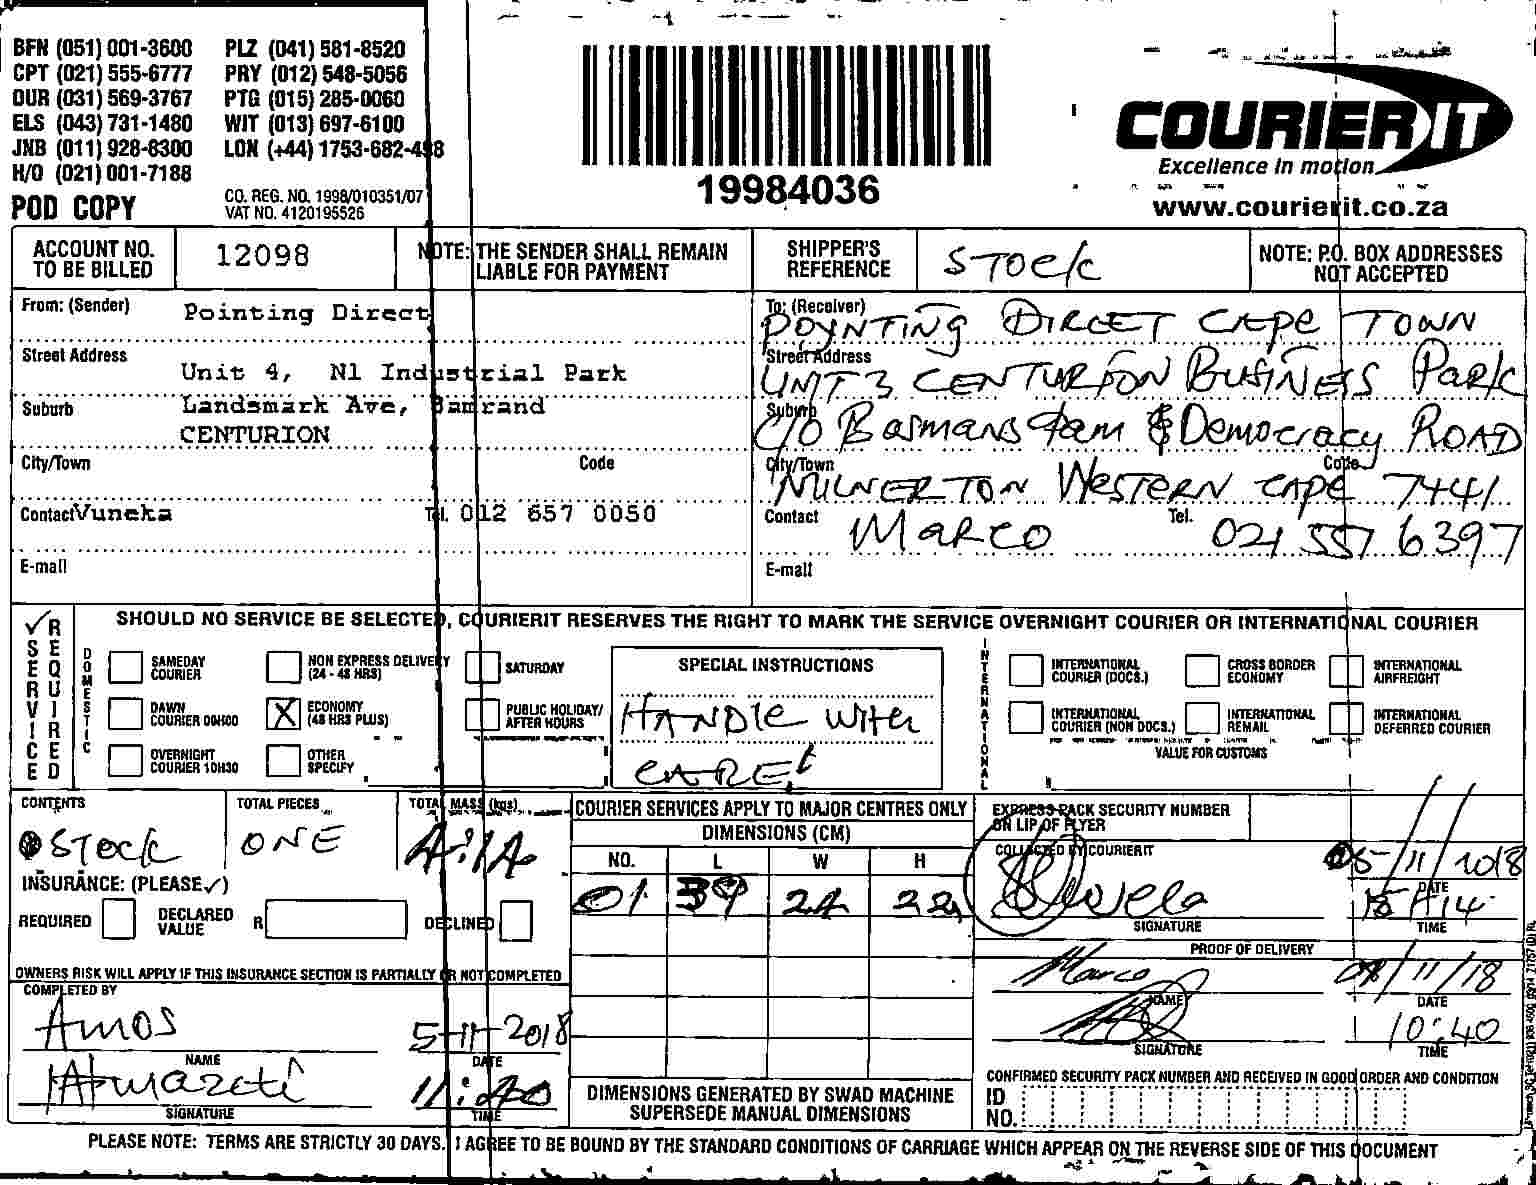 BFN (051) 001-3600 PLZ (041) 581-8520
CPT (021) 555-6777 PRY (012) 548-5056
DUR (031) 569-3767 PTG (015) 285-0060
ELS (043) 731-1480 WIT (013) 697-6100
JNB (011) 928-6300 LON (+44) 1753-682-498
H/O (021) 001-7188
POD COPY
CO. REG. NO. 1998/010351/07
VAT NO. 4120195526
19984036
COURIER IT
Excellence in motion
www.courierit.co.za
ACCOUNT NO. TO BE BILLED
12098
NOTE: THE SENDER SHALL REMAIN LIABLE FOR PAYMENT
SHIPPER'S REFERENCE
STOCK
NOTE: P.O. BOX ADDRESSES NOT ACCEPTED
From: (Sender) Pointing Direct
Street Address Unit 4, N1 Industrial Park
Suburb Landsmark Ave, Samrand
CENTURION
City/Town Code
Contact Vuneka Tel. 012 657 0050
E-mail
To: (Receiver)
POYNTING DIRECT CAPE TOWN
Street Address
UNIT 3 CENTURION BUSINESS PARK
Suburb
C/O Bosmans dam & Democracy ROAD
City/Town Code
MILNERTON WESTERN CAPE 7441
Contact MARCO Tel. 021 557 6397
E-mail
✓ SERVICE REQUIRED
SHOULD NO SERVICE BE SELECTED, COURIERIT RESERVES THE RIGHT TO MARK THE SERVICE OVERNIGHT COURIER OR INTERNATIONAL COURIER
DOMESTIC
SAMEDAY COURIER
NON EXPRESS DELIVERY (24 - 48 HRS)
SATURDAY
DAWN COURIER 09H00
X ECONOMY (48 HRS PLUS)
PUBLIC HOLIDAY/ AFTER HOURS
OVERNIGHT COURIER 10H30
OTHER SPECIFY
SPECIAL INSTRUCTIONS
HANDLE WITH
CARE!
INTERNATIONAL
INTERNATIONAL COURIER (DOCS.)
CROSS BORDER ECONOMY
INTERNATIONAL AIRFREIGHT
INTERNATIONAL COURIER (NON DOCS.)
INTERNATIONAL REMAIL
INTERNATIONAL DEFERRED COURIER
VALUE FOR CUSTOMS
CONTENTS
STOCK
TOTAL PIECES
ONE
TOTAL MASS (kgs)
INSURANCE: (PLEASE ✓)
REQUIRED
DECLARED VALUE R
DECLINED
OWNERS RISK WILL APPLY IF THIS INSURANCE SECTION IS PARTIALLY OR NOT COMPLETED
COMPLETED BY
Amos 5-11-2018
NAME DATE
SIGNATURE TIME
COURIER SERVICES APPLY TO MAJOR CENTRES ONLY
DIMENSIONS (CM)
NO. L W H
01 39 24 22
DIMENSIONS GENERATED BY SWAD MACHINE SUPERSEDE MANUAL DIMENSIONS
EXPRESS PACK SECURITY NUMBER ON LIP OF FLYER
COLLECTED BY COURIERIT
05/11/2018
DATE
15H14
SIGNATURE TIME
PROOF OF DELIVERY
Marco 08/11/18
NAME DATE
10:40
SIGNATURE TIME
CONFIRMED SECURITY PACK NUMBER AND RECEIVED IN GOOD ORDER AND CONDITION
ID NO.
PLEASE NOTE: TERMS ARE STRICTLY 30 DAYS. I AGREE TO BE BOUND BY THE STANDARD CONDITIONS OF CARRIAGE WHICH APPEAR ON THE REVERSE SIDE OF THIS DOCUMENT